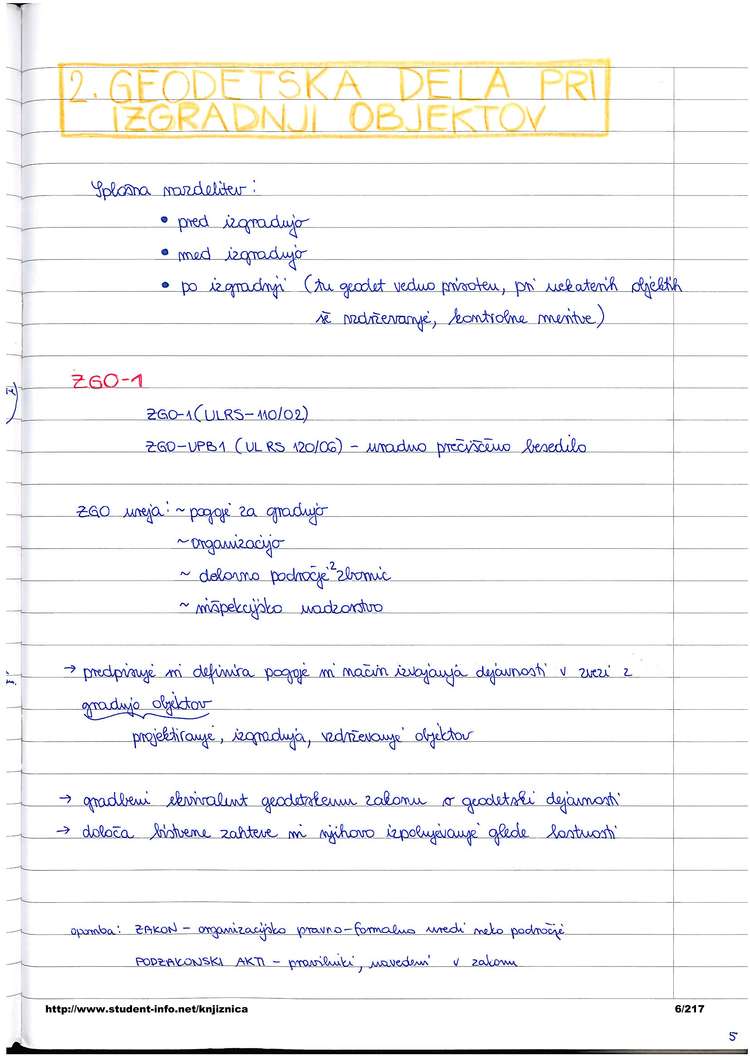 2. GEODETSKA DELA PRI
IZGRADNJI OBJEKTOV
Splošna razdelitev:
• pred izgradnjo
• med izgradnjo
• po izgradnji (tu geodet vedno prisoten, pri nekaterih objektih
še vzdrževanje, kontrolne meritve)
ZGO-1
ZGO-1 (ULRS-110/02)
ZGO-UPB1 (UL RS 120/06) - uradno prečiščeno besedilo
ZGO ureja: ~ pogoje za gradnjo
~ organizacijo
~ delovno področje 2 zbornic
~ inšpekcijsko nadzorstvo
→ predpisuje in definira pogoje in način izvajanja dejavnosti v zvezi z
gradnjo objektov
projektiranje, izgradnja, vzdrževanje objektov
→ gradbeni ekvivalent geodetskemu zakonu o geodetski dejavnosti
→ določa bistvene zahteve in njihovo izpolnjevanje glede lastnosti
opomba: ZAKON - organizacijsko pravno-formalno uredi neko področje
PODZAKONSKI AKTI - pravilniki, navedeni v zakonu
http://www.student-info.net/knjiznica 6/217
5